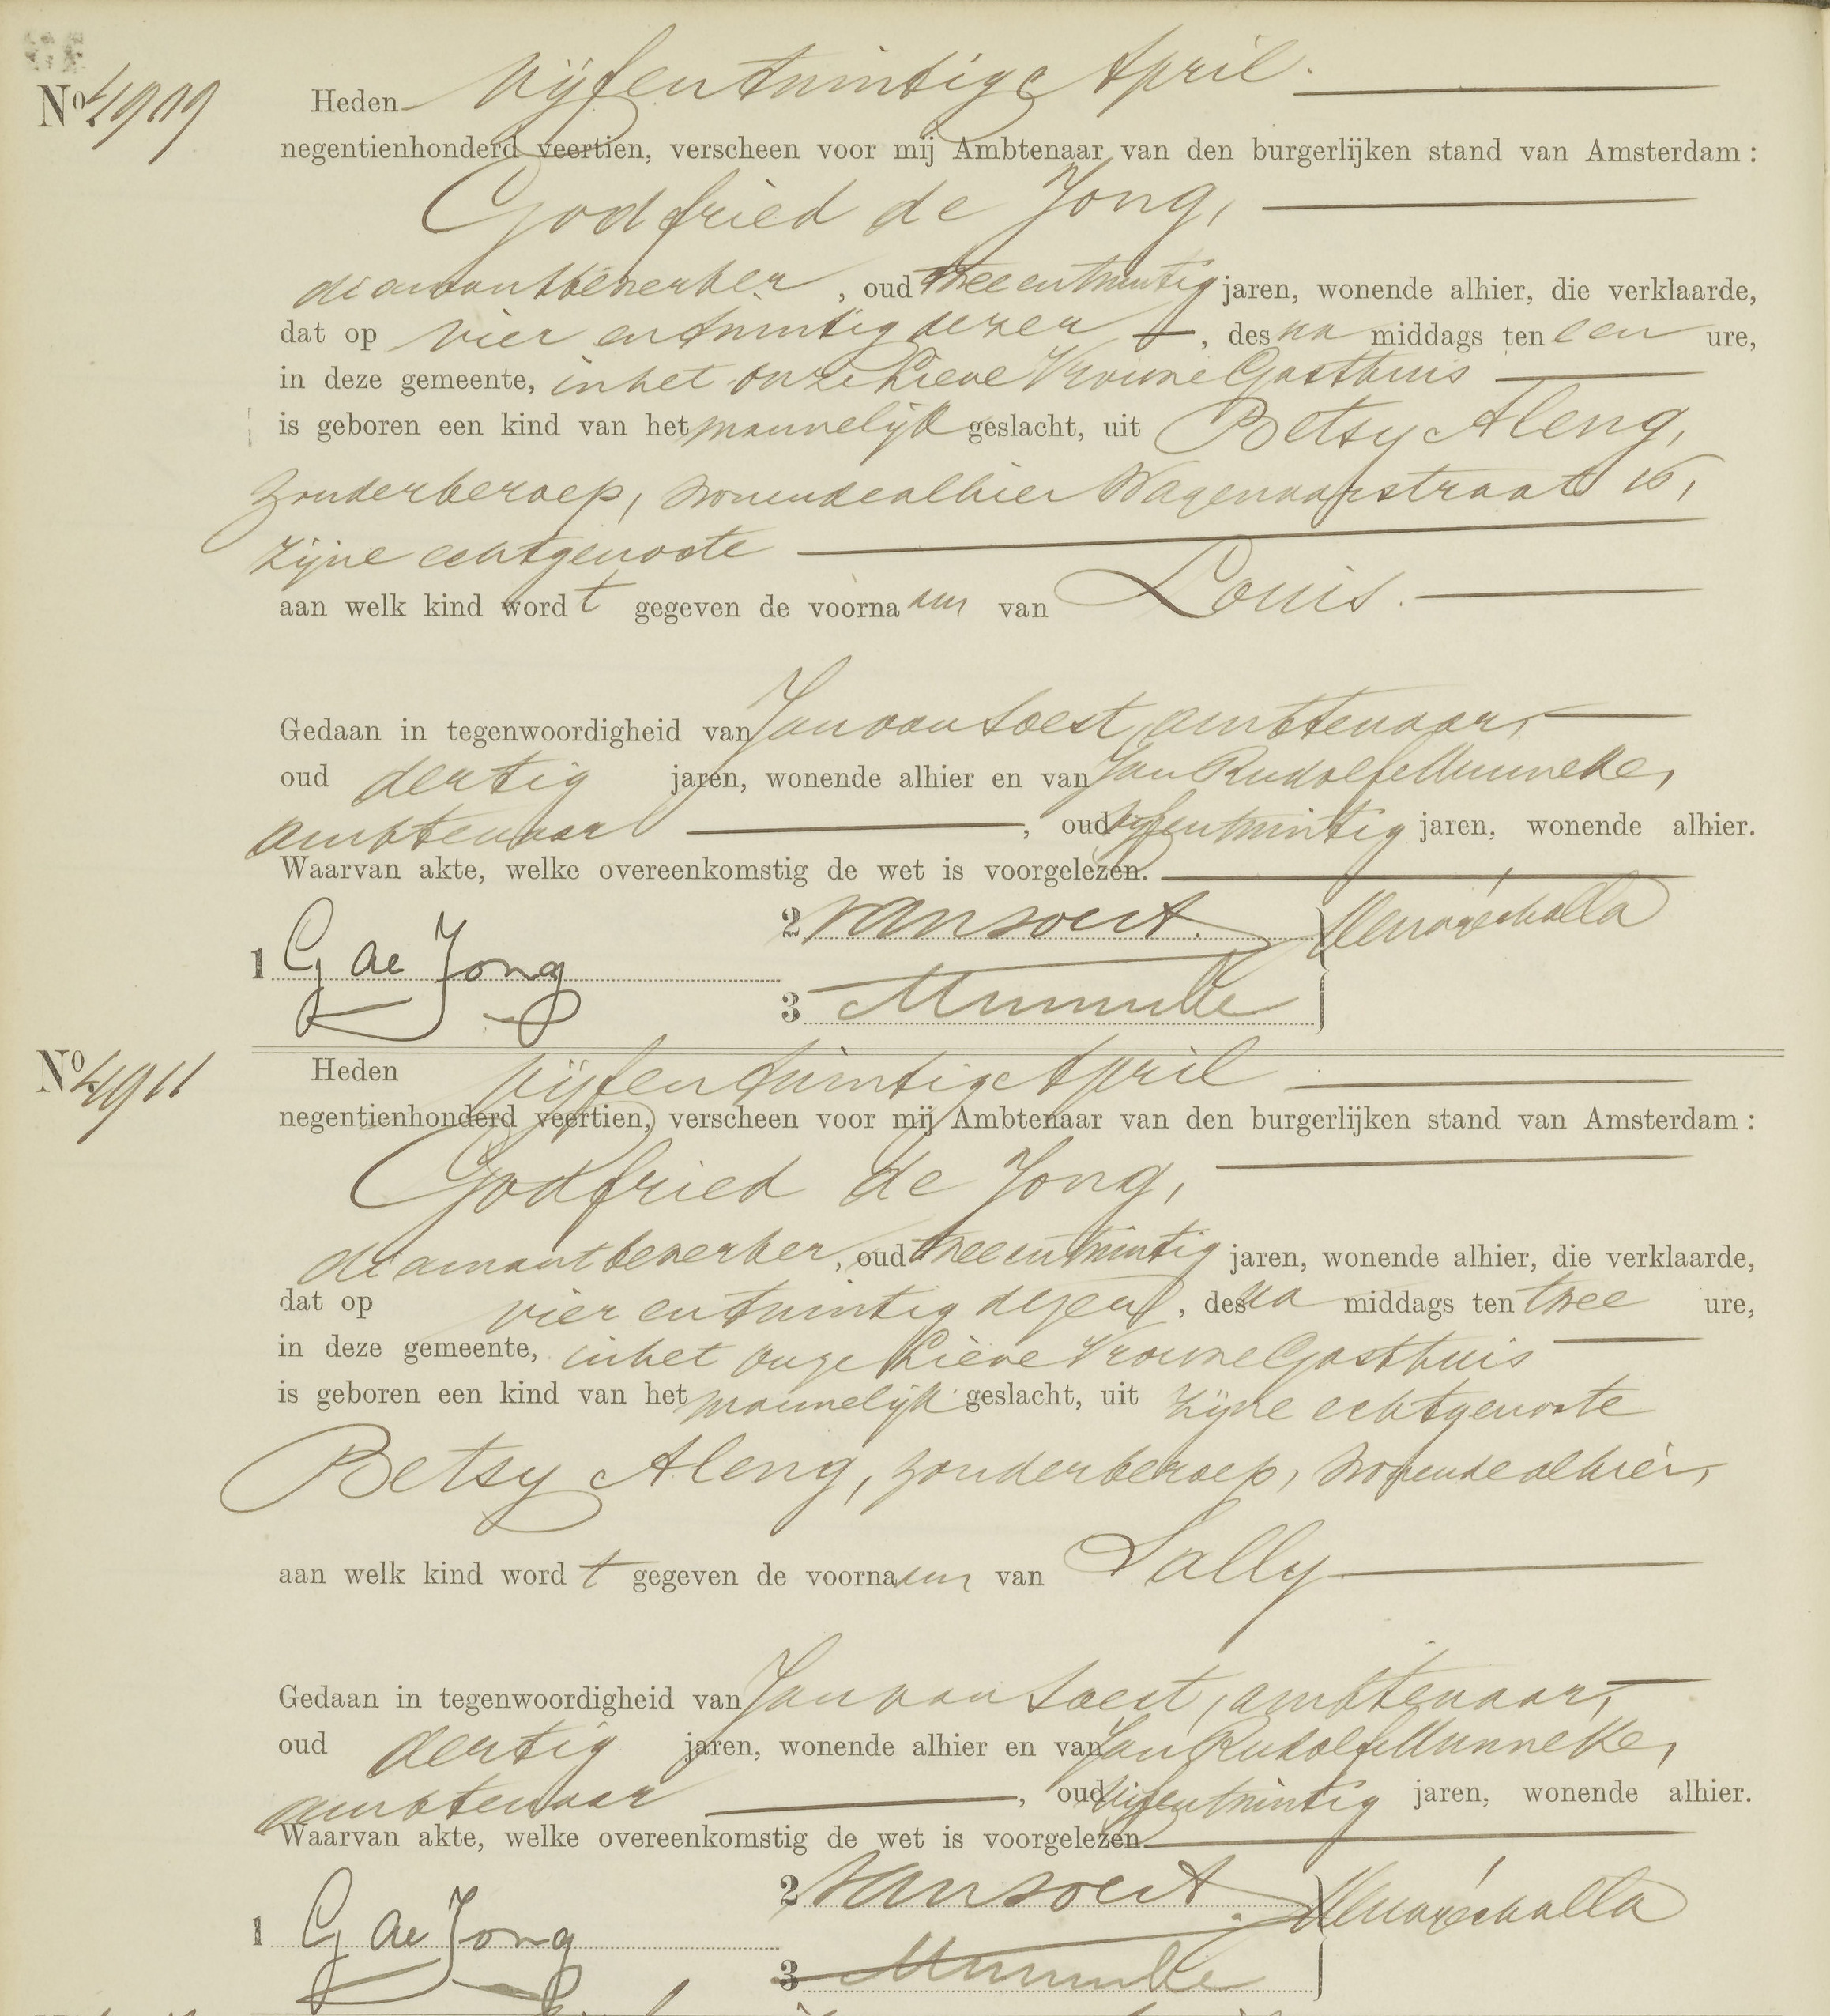 No 4909
Heden vijfentwintige April.
negentienhonderd veertien, verscheen voor mij Ambtenaar van den burgerlijken stand van Amsterdam:
Godfried de Jong,
diamantbewerker, oud tweeentwintig jaren, wonende alhier, die verklaarde,
dat op vier en twintig dezer, des na middags ten een ure,
in deze gemeente, in het Onze Lieve Vrouwe Gasthuis
is geboren een kind van het mannelijk geslacht, uit Betsy Aleng,
zonder beroep, wonende alhier Wagenaarstraat 16,
zijne echtgenoote
aan welk kind wordt gegeven de voornaam van Louis.
Gedaan in tegenwoordigheid van Jan van Soest, ambtenaar,
oud dertig jaren, wonende alhier en van Jan Rudolf Munneke,
ambtenaar, oud vijfentwintig jaren, wonende alhier.
Waarvan akte, welke overeenkomstig de wet is voorgelezen.
1 G de Jong
2 van Soest.
3 Munneke
No 4911
Heden vijfentwintige April
negentienhonderd veertien, verscheen voor mij Ambtenaar van den burgerlijken stand van Amsterdam:
Godfried de Jong,
diamantbewerker, oud tweeentwintig jaren, wonende alhier, die verklaarde,
dat op vier en twintig dezer, des na middags ten twee ure,
in deze gemeente, in het Onze Lieve Vrouwe Gasthuis
is geboren een kind van het mannelijk geslacht, uit zijne echtgenoote
Betsy Aleng, zonder beroep, wonende alhier,
aan welk kind wordt gegeven de voornaam van Sally
Gedaan in tegenwoordigheid van Jan van Soest, ambtenaar,
oud dertig jaren, wonende alhier en van Jan Rudolf Munneke,
ambtenaar, oud vijfentwintig jaren, wonende alhier.
Waarvan akte, welke overeenkomstig de wet is voorgelezen.
1 G de Jong
2 van Soest.
3 Munneke